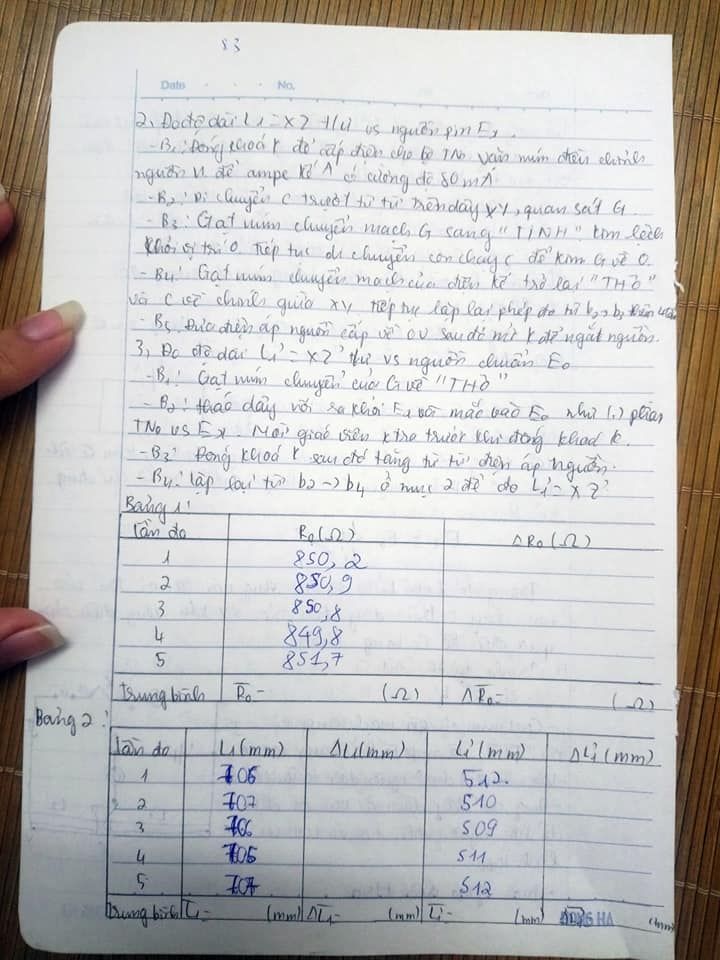 83
Date No.
2, Đo độ dài L₁ = XZ + Lú vs nguồn pin Eₓ.
- B₁: Đóng khoá K để cấp điện cho bộ TN₀ vặn núm điều chỉnh
nguồn U để ampe kế A có cường độ 50 mA
- B₂: Di chuyển C trượt từ từ trên dây XY, quan sát G.
- B₃: Gạt núm chuyển mạch G sang "TINH". Kim lệch
khỏi vị trí 0. Tiếp tục di chuyển con chạy C để kim G về 0.
- B₄: Gạt núm chuyển mạch của điện kế trở lại "THÔ"
và C về chính giữa XY tiếp tục lặp lại phép đo từ b₂ → b₄
- B₅: Đưa điện áp nguồn cấp về 0V sau đó mở K để ngắt nguồn.
3, Đo độ dài L₁' = XZ' vs nguồn chuẩn E₀
- B₁: Gạt núm chuyển của G về "THÔ"
- B₂: tháo dây nối ra khỏi Eₓ rồi mắc vào E₀ như phần
TN₀ vs Eₓ. Mời giáo viên ktra trước khi đóng khoá K.
- B₃: Đóng khoá K sau đó tăng từ từ điện áp nguồn.
- B₄: lặp lại từ b₂ → b₄ ở mục 2 để đo L₁' = XZ'
Bảng 1:
Lần đo R₀(Ω) ΔR₀(Ω)
1 850,2
2 850,9
3 850,8
4 849,8
5 851,7
trung bình R̄₀= (Ω) ΔR̄₀= (Ω)
Bảng 2:
Lần đo L₁(mm) ΔL₁(mm) L₁'(mm) ΔL₁'(mm)
1 706 512
2 707 510
3 706 509
4 705 511
5 707 512
trung bình L̄₁= (mm) ΔL̄₁= (mm) L̄₁'= (mm) (mm)